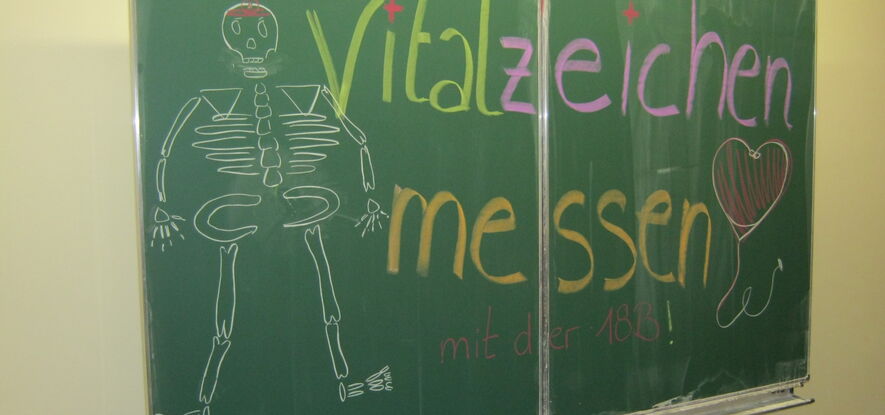 Vitalzeichen
messen
mit der 18B!